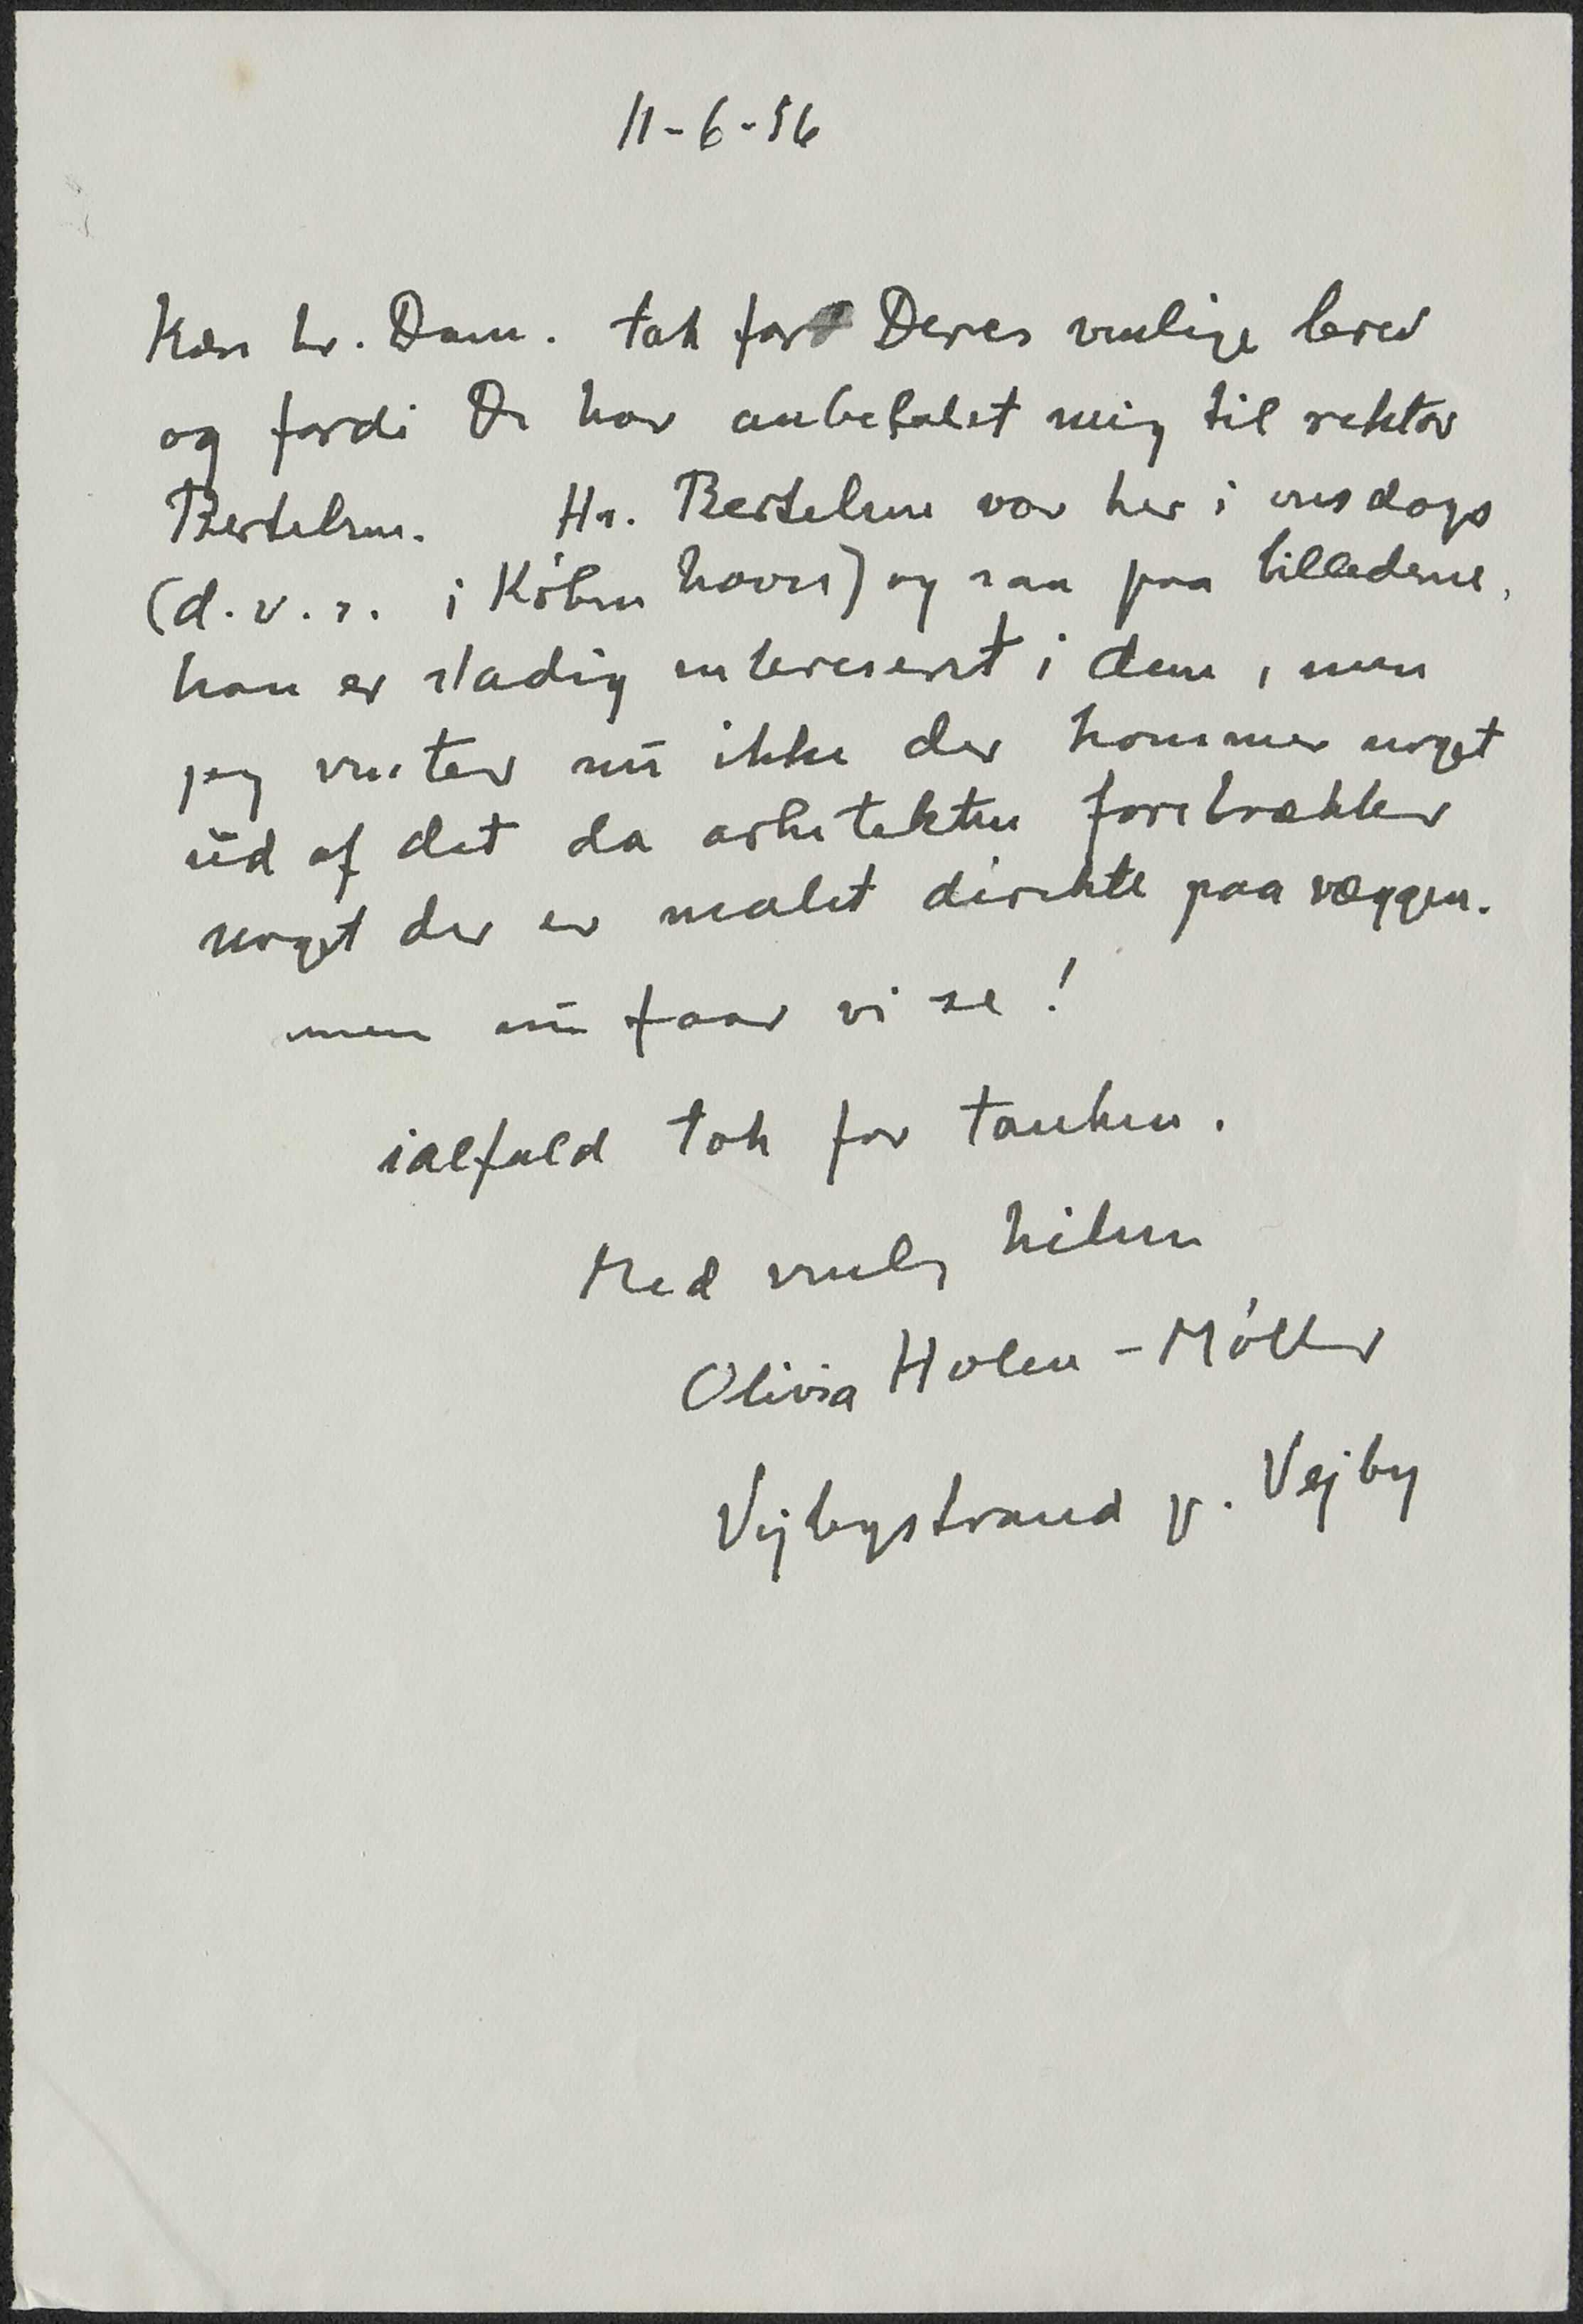 11-6-56
Kære hr. Dam. tak for Deres venlige brev
og fordi De har anbefalet mig til rektor
Bertelsen. Hr. Bertelsen var her i onsdags
(d.v.s. i Københaven) og saa paa billederne,
han er stadig interesseret i dem, men
jeg venter nu ikke der kommer noget
ud af det da arkitekten foretrækker
noget der er malet direkte paa væggen.
men nu faar vi se!
ialfald tak for tanken.
Med venlig hilsen
Olivia Holm-Møller
Vejbystrand p. Vejby